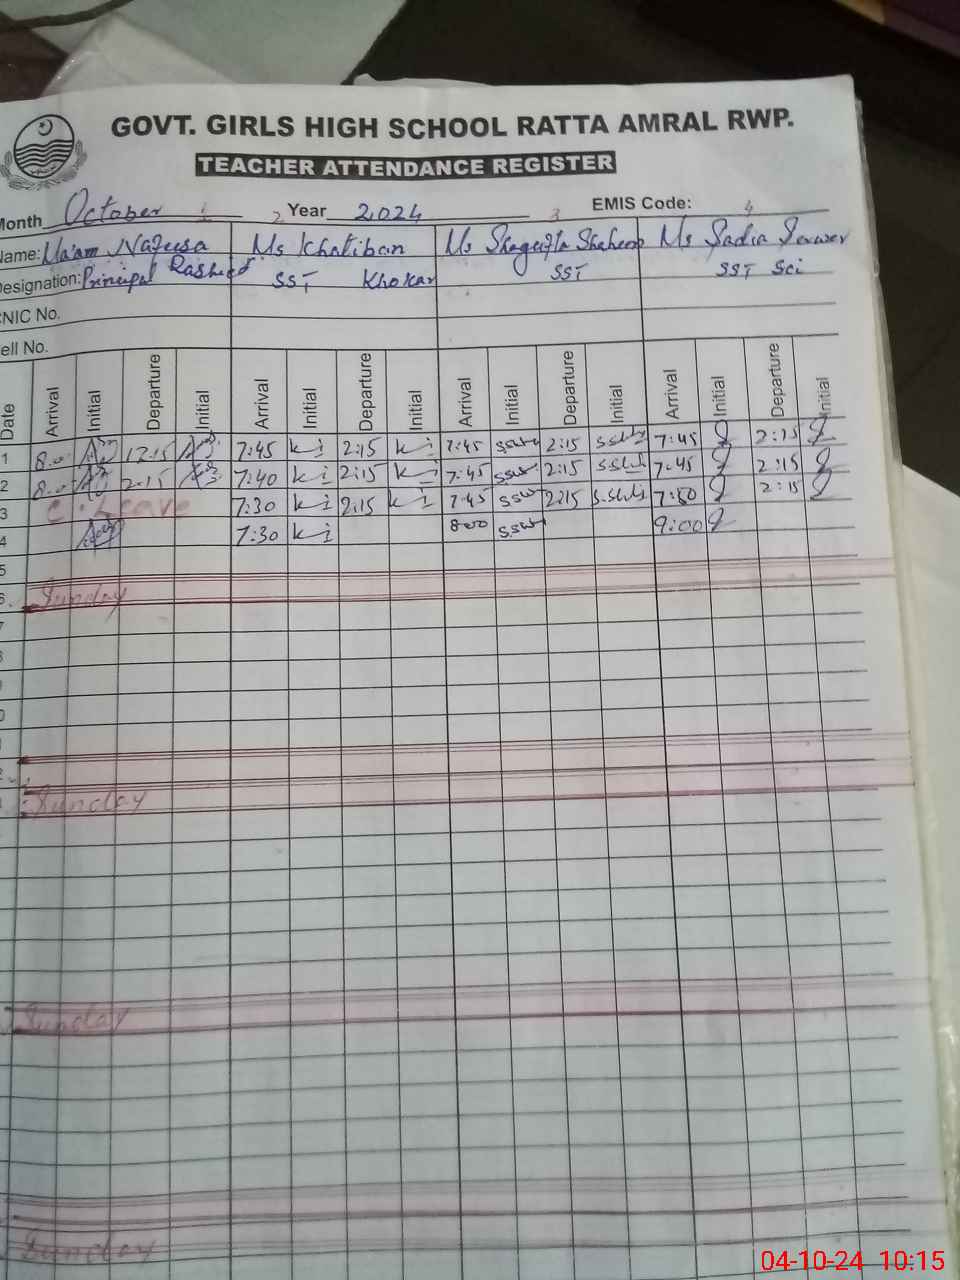 GOVT. GIRLS HIGH SCHOOL RATTA AMRAL RWP.
TEACHER ATTENDANCE REGISTER
Month October 1 2 Year 2024 3 EMIS Code: 4
Name: Ma'am Ms Khatiban Ms Shagufta Shaheen Ms Sadia Server
Designation: Principal Rasheed SST Khokar SST SST Sci
CNIC No.
ell No.
Date Arrival Initial Departure Initial Arrival Initial Departure Initial Arrival Initial Departure Initial Arrival Initial Departure Initial
1 8.00 12:15 7:45 2:15 7:45 2:15 7:45 2:15
2 8.00 2.15 7:40 2:15 7:45 2:15 7:45 2:15
3 C. Leave 7:30 2:15 7:45 2:15 2:15
4 7:30 8:00 9:00
5
6 Sunday
7
Sunday
Sunday
Sunday
04-10-24 10:15